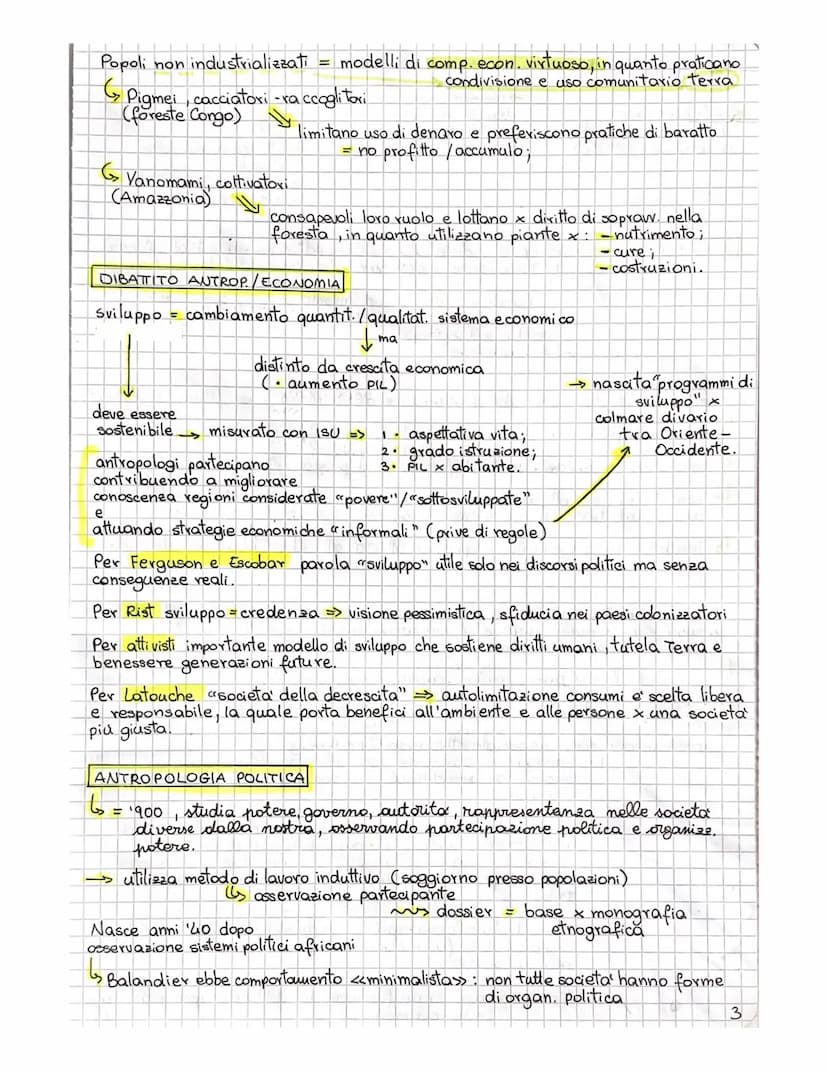 Popoli non industrializzati = modelli di comp. econ. virtuoso, in quanto praticano
condivisione e uso comunitario terra
↳ Pigmei, cacciatori-raccoglitori
(foreste Congo)
limitano uso di denaro e preferiscono pratiche di baratto
= no profitto/accumulo;
↳ Yanomami, coltivatori
(Amazzonia)
consapevoli loro ruolo e lottano x diritto di sopravv. nella
foresta, in quanto utilizzano piante x: - nutrimento;
- cure;
- costruzioni.
DIBATTITO ANTROP./ECONOMIA
sviluppo = cambiamento quantit./qualitat. sistema economico
↓ ma
distinto da crescita economica
(· aumento PIL)
→ nascita "programmi di
sviluppo" x
colmare divario
tra Oriente-
Occidente.
deve essere
sostenibile → misurato con ISU ⇒ 1· aspettativa vita;
2· grado istruzione;
3· PIL x abitante.
antropologi partecipano
contribuendo a migliorare
conoscenza regioni considerate "povere"/"sottosviluppate"
e
attuando strategie economiche "informali" (prive di regole)
Per Ferguson e Escobar parola "sviluppo" utile solo nei discorsi politici ma senza
conseguenze reali.
Per Rist sviluppo = credenza ⇒ visione pessimistica, sfiducia nei paesi colonizzatori
Per attivisti importante modello di sviluppo che sostiene diritti umani, tutela Terra e
benessere generazioni future.
Per Latouche "società della decrescita" ⇒ autolimitazione consumi è scelta libera
e responsabile, la quale porta benefici all'ambiente e alle persone x una società
più giusta.
ANTROPOLOGIA POLITICA
↳ = '900, studia potere, governo, autorità, rappresentanza nelle società
diverse dalla nostra, osservando partecipazione politica e organizz.
potere.
→ utilizza metodo di lavoro induttivo (soggiorno presso popolazioni)
↳ osservazione partecipante
⇝ dossier = base x monografia
etnografica
Nasce anni '40 dopo
osservazione sistemi politici africani
↳ Balandier ebbe comportamento «minimalista»: non tutte società hanno forme
di organ. politica
3